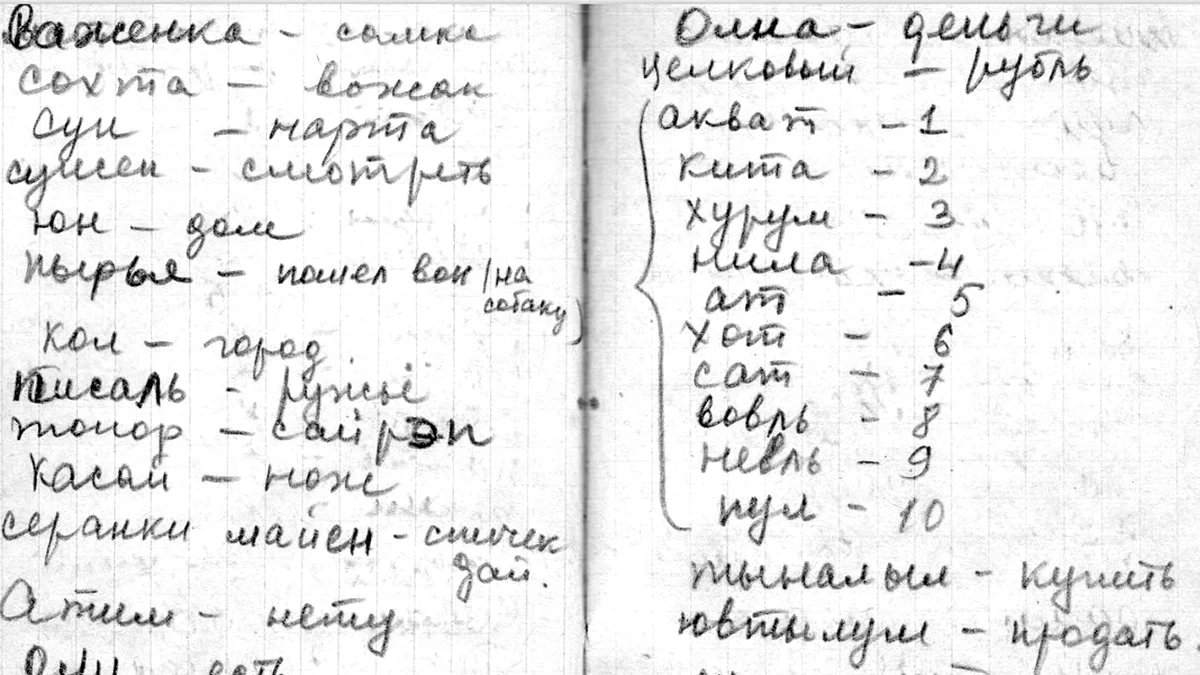 Важенка - самка
Сохта - вожак
Сун - нарта
сунсен - смотреть
Юн - дом
пырья - пошел вон (на собаку)
Кол - город
писаль - ружьё
топор - сайрэп
Касай - нож
серанки майен - спичек
дай.
Атим - нету
есть
Олна - деньги
целковый - рубль
акват - 1
кита - 2
хурум - 3
нила - 4
ат - 5
хот - 6
сат - 7
вовль - 8
невль - 9
пул - 10
тыналыл - купить
ювтылум - продать.